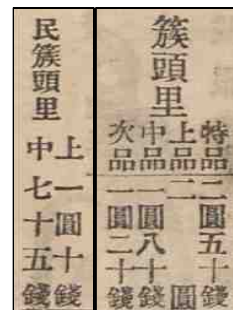 簇頭里
特品二圓五十錢
上品二圓
中品一圓八十錢
次品一圓二十錢
民簇頭里
上一圓十錢
中七十五錢